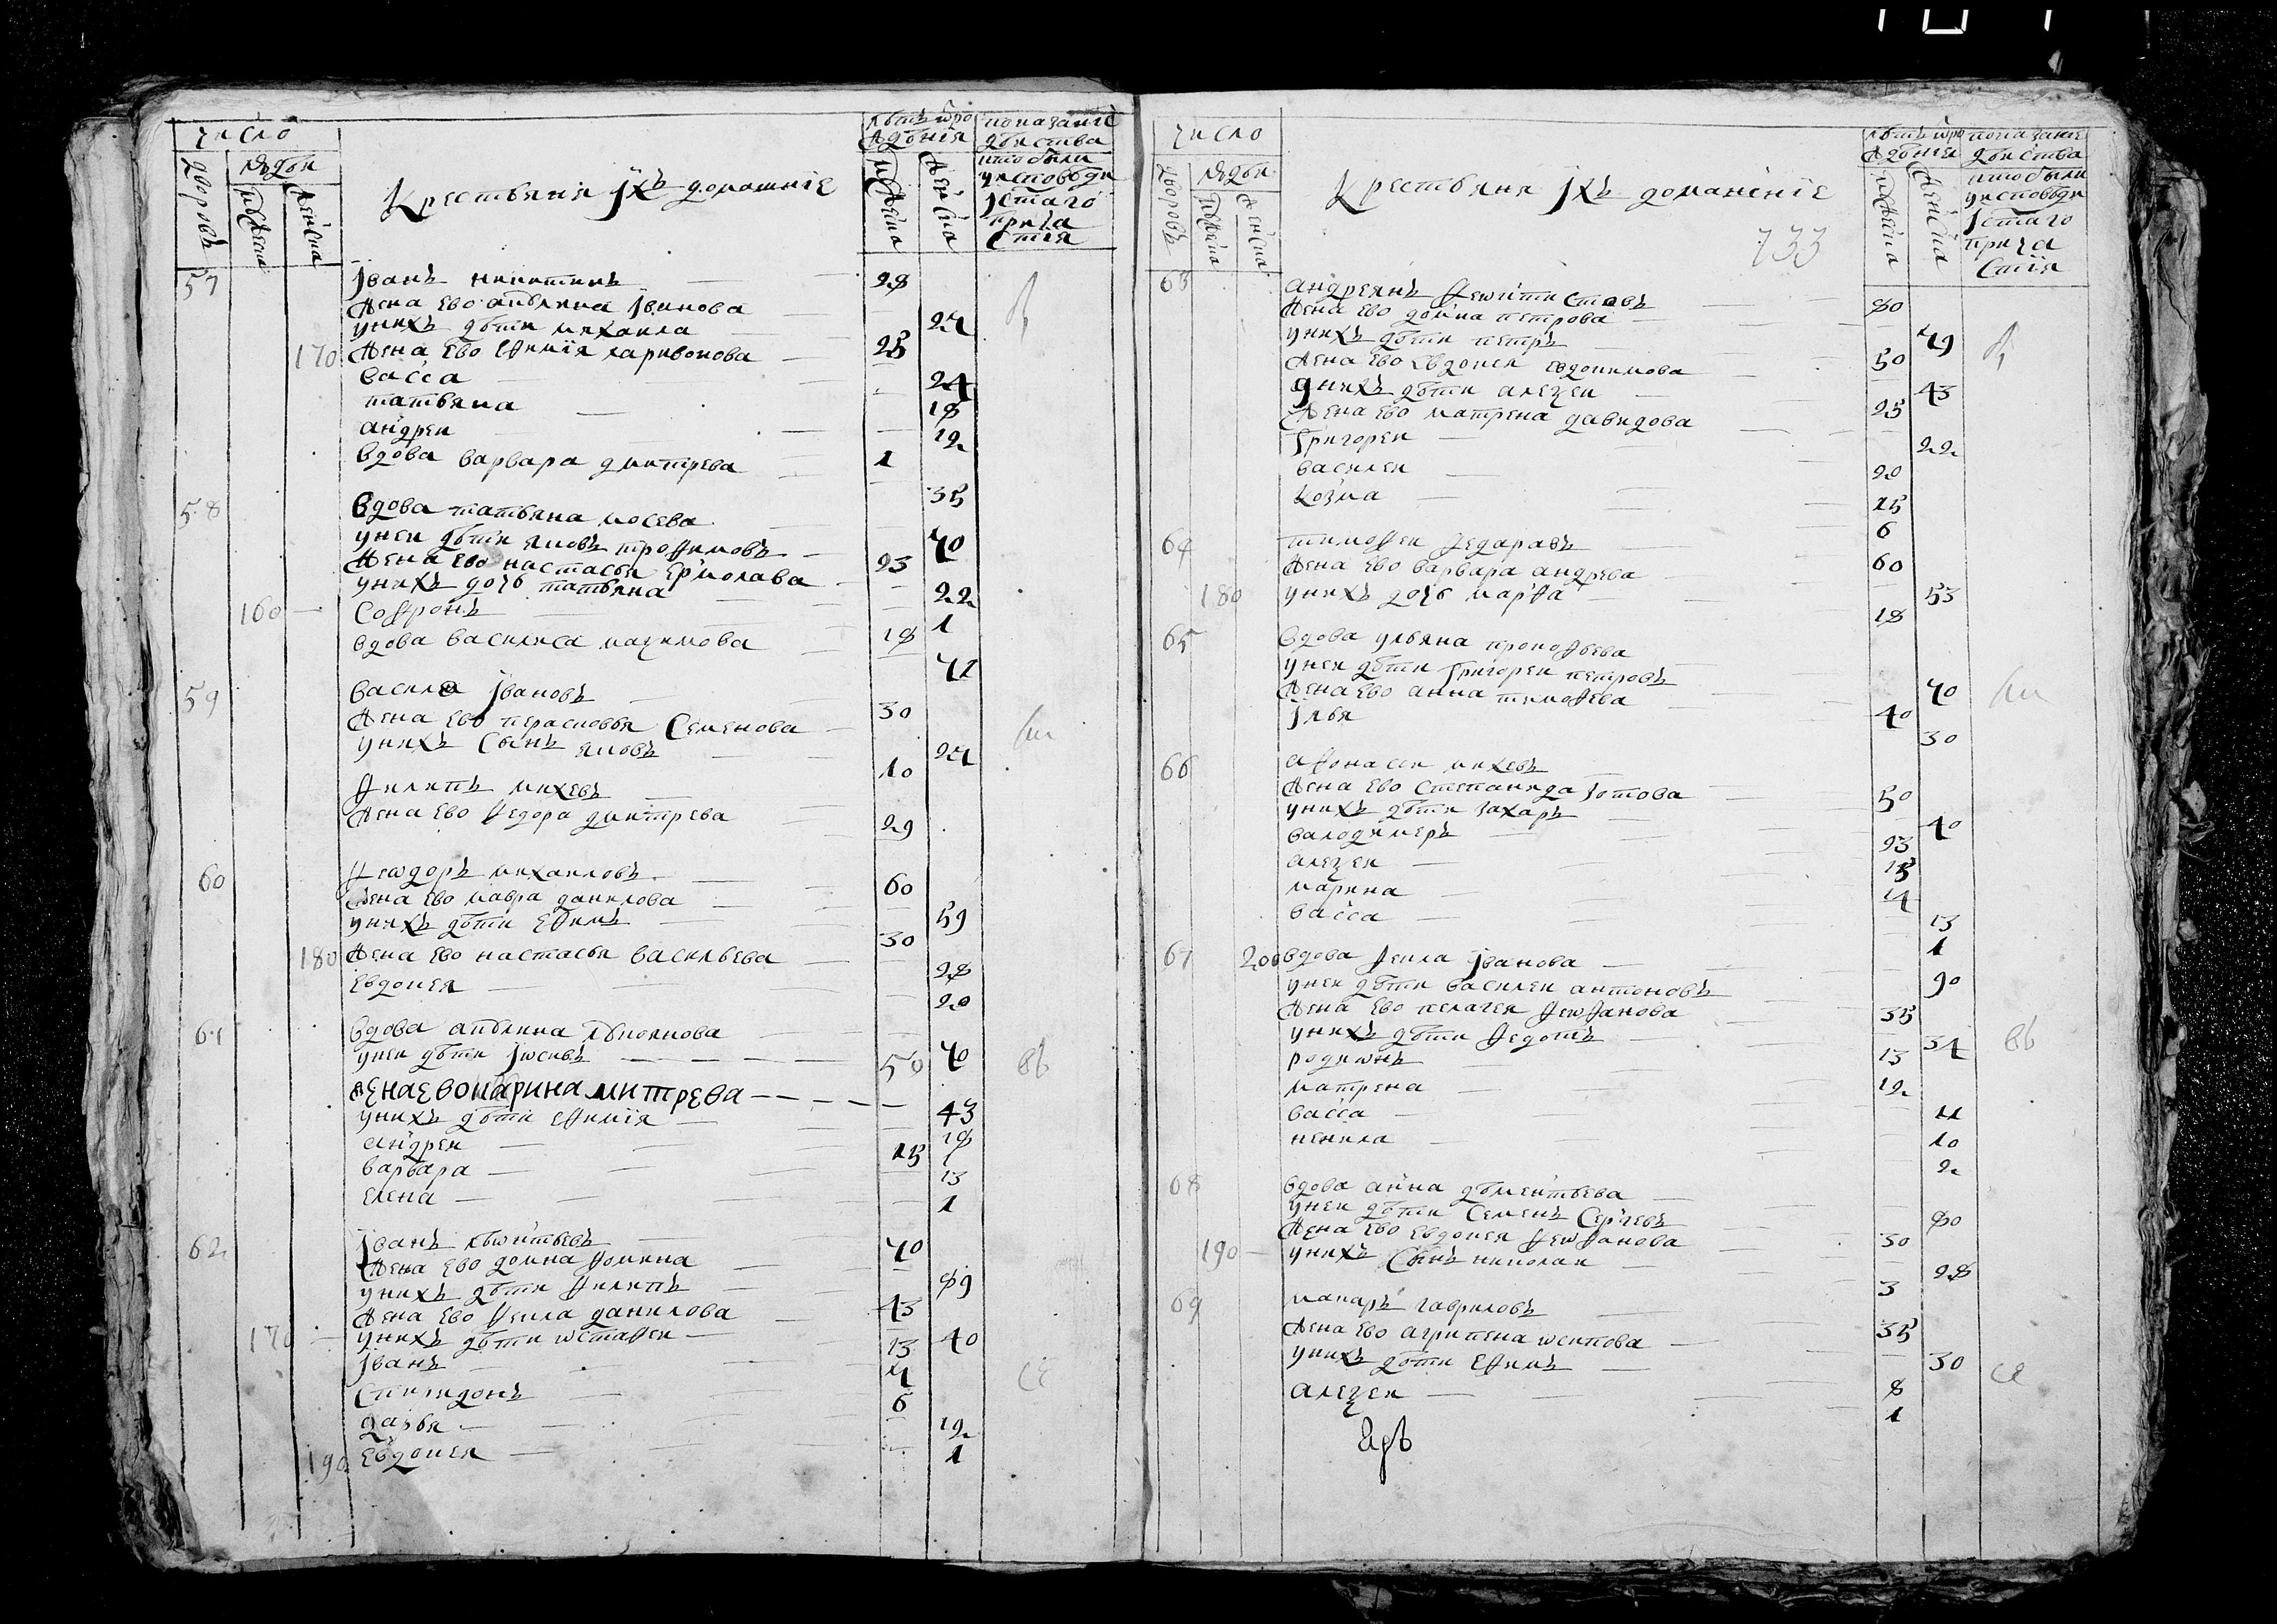 число
лѣтъ ѿро
показание
дворовъ
людеи
ждения
дѣиства
мужеска
женска
Крестьяня јхъ домашніе
мужеска
женска
кто были
у исповѣди
јстаго
прича
стия
57 јванъ никитинъ 28
жена ево акѣлина јванова 27
у нихъ дѣти михаила 25
170 жена ево ефимія ларивонова 24
васса 18
татьяна 12
андреи 1
вдова варвара дмитрева 35
58 вдова татьяна мосева 70
у неи дѣти яковъ трофимовъ 23
жена ево настасья ермолава 22
у нихъ дочь татьяна 1
160 софронъ 18
вдова василиса махимова 71
59 василеи јвановъ 30
жена ево перасковья семенова 27
у нихъ сынъ яковъ 10
филипъ михевъ 29
жена ево федора дмитрева
60 феѡдоръ михаиловъ 60
жена ево мавра данилова 59
у нихъ дѣти ефимъ 30
180 жена ево настасья васильева 28
евдокея 20
61 вдова акѣлина лѣкоянова 70
у неи дѣти јѡсивъ 50
жена ево марина митрева 43
у нихъ дѣти ефимія 18
андреи 15
варвара 13
елена 1
62 јванъ лѣѡнтьевъ 70
жена ево домна фомина 89
у нихъ дѣти филипъ 43
жена ево фекла данилова 40
170 у нихъ дѣти ѡстафеи 13
јванъ
спиридонъ 6
дарья 12
190 евдокея 1
число
лѣтъ ѿро
показание
дворовъ
людеи
ждения
дѣиства
мужеска
женска
Крестьяня јхъ доманісніе
733
мужеска
женска
кто были
у исповѣди
јстаго
прича
стия
63 андреянъ феѡктистовъ 80
жена ево домна петрова 79
у нихъ дѣти петръ 50
жена ево евдокея евдокимова 43
у нихъ дѣти алеѯеи 25
жена ево матрена давидова 22
григореи 20
василеи 15
козма 6
64 тимофеи федаравъ 60
жена ево варвара андрева 53
180 у нихъ дочь марфа 18
65 вдова ульяна прокофьева 70
у неи дѣти григореи петровъ 40
жена ево анна тимофева 30
јлья
66 афонасеи михевъ 50
жена ево степанида зотова 40
у нихъ дѣти захаръ 23
валодимеръ 15
алеѯеи 14
марина 13
васса 1
67 200 вдова фекла јванова 90
у неи дѣти василеи антоновъ 35
жена ево пелагея феѡфанова 34
у нихъ дѣти федотъ 13
родиѡнъ 12
матрена 11
васса 10
ненила 2
68 вдова анна дѣментьева 80
у неи дѣти семенъ сергевъ 30
жена ево евдокея феѡфанова 28
190 у нихъ сынъ николаи 3
69 макаръ гавриловъ 35
жена ево агрипена ѡсипова 30
у нихъ дѣти ефимъ 8
алеѯеи 1